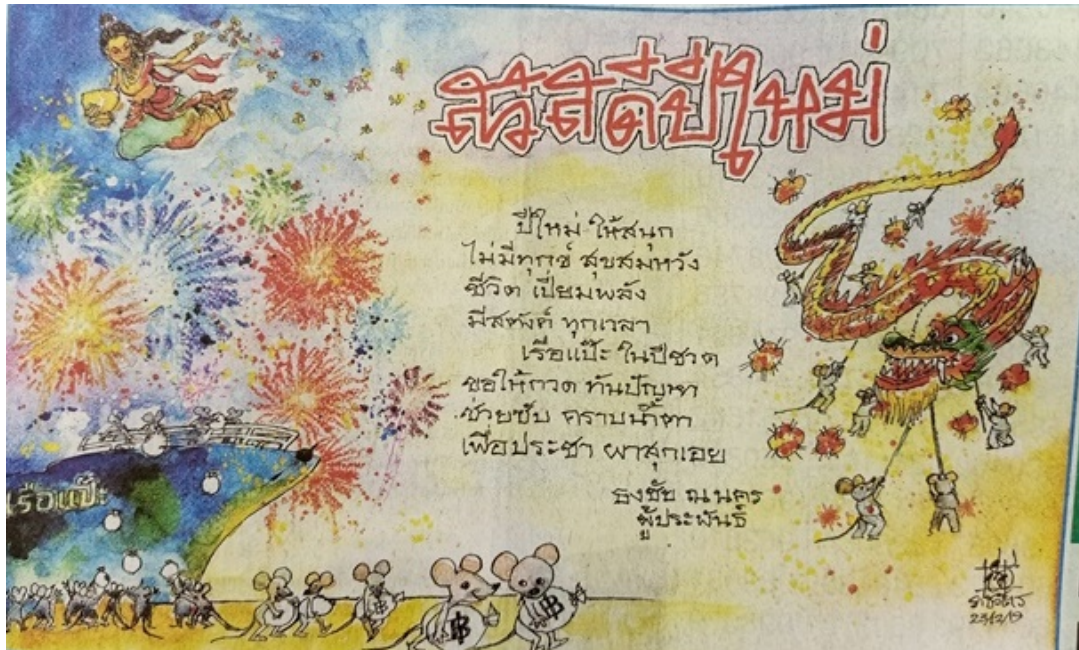 สวัสดีปีใหม่
ปีใหม่ ให้สนุก
ไม่มีทุกข์ สุขสมหวัง
ชีวิต เปี่ยมพลัง
มีสตังค์ ทุกเวลา
เรือแป๊ะ ในปีชวด
ขอให้กวด ทันปัญหา
ช่วยซับ คราบน้ำตา
เพื่อประชา ผาสุกเอย
ธงชัย ณ นคร
ผู้ประพันธ์
เรือแป๊ะ
฿ ฿ ฿
23/12/19